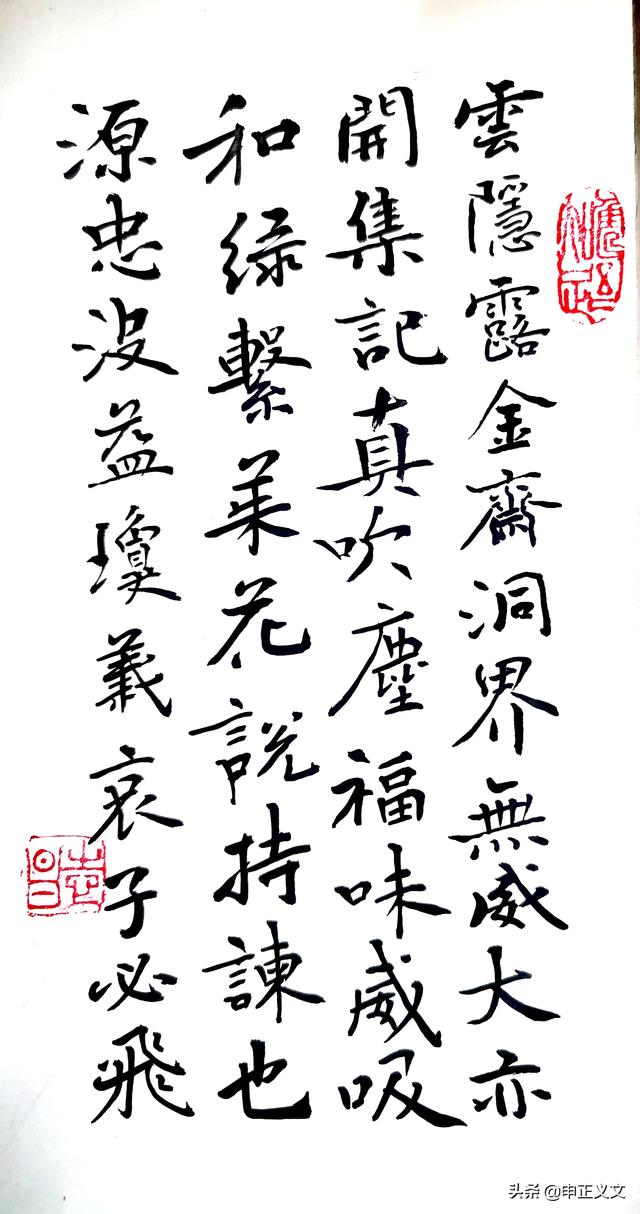 雲隱露金齋洞界無威大亦
開集記真吹塵福味威吸
和绿繫菜花說持諫也
源忠没益瓊義哀子必飛
头条 @申正义文